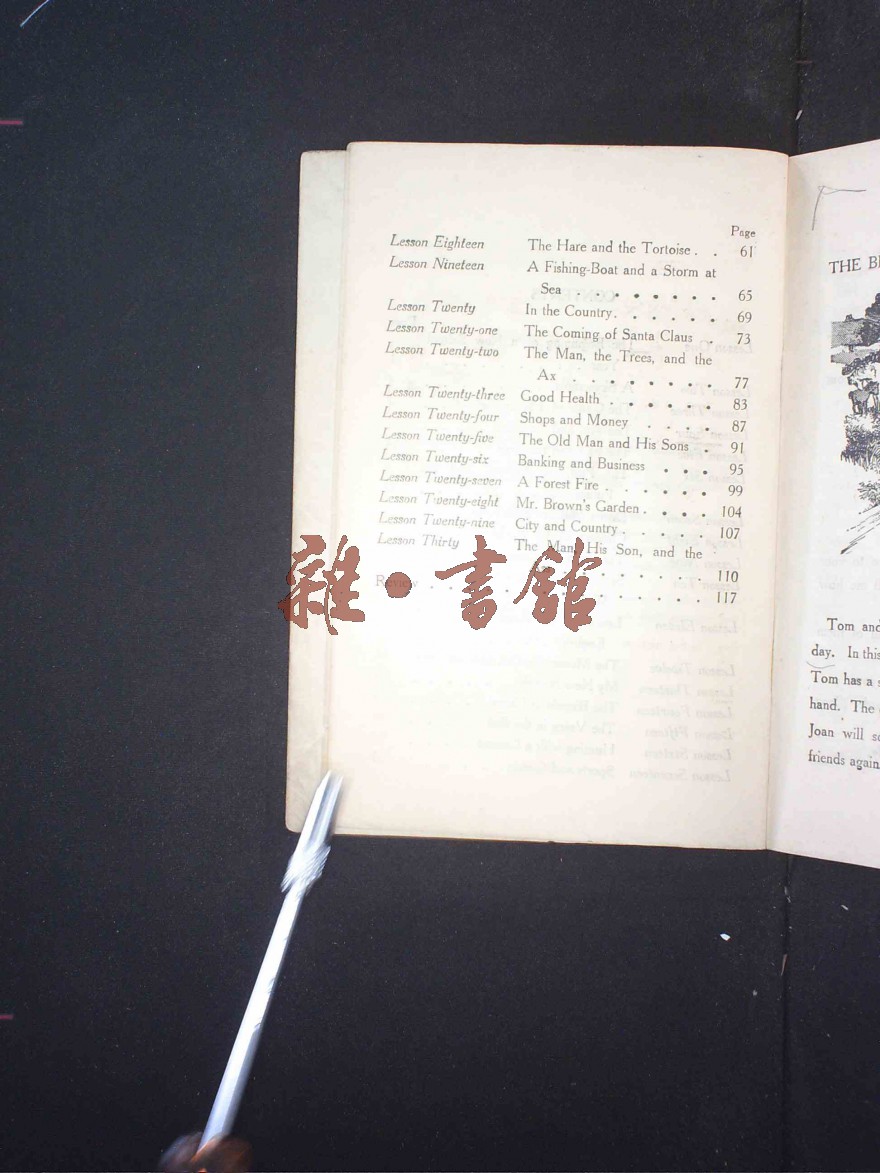 Page
Lesson Eighteen The Hare and the Tortoise . . 61
Lesson Nineteen A Fishing-Boat and a Storm at
Sea . . . . . . . 65
Lesson Twenty In the Country . . . . . . 69
Lesson Twenty-one The Coming of Santa Claus . 73
Lesson Twenty-two The Man, the Trees, and the
Ax . . . . . . . . 77
Lesson Twenty-three Good Health . . . . . . . 83
Lesson Twenty-four Shops and Money . . . . 87
Lesson Twenty-five The Old Man and His Sons . 91
Lesson Twenty-six Banking and Business . . . 95
Lesson Twenty-seven A Forest Fire . . . . . . 99
Lesson Twenty-eight Mr. Brown's Garden . . . . 104
Lesson Twenty-nine City and Country . . . . . 107
Lesson Thirty The Man, His Son, and the
. . . . . . . 110
Review . . . . . . . . . . . . . . 117
雜·書館
THE
Tom and
day. In this
Tom has a
hand. The
Joan will
friends again